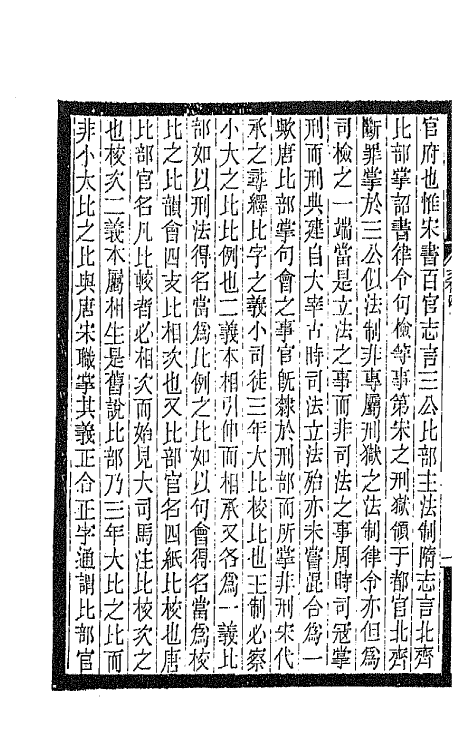 官府也惟宋書百官志言三公比部主法制隋志言北齊
比部掌詔書律令句檢等事第宋之刑獄領于都官北齊
斷罪掌於三公似法制非專屬刑獄之法制律令亦但爲
司檢之一端當是立法之事而非司法之事周時司寇掌
刑而刑典建自大宰古時司法立法殆亦未嘗混合爲一
歟唐比部掌句會之事官旣隸於刑部而所掌非刑宋代
承之尋釋比字之義小司徒三年大比校比也王制必察
小大之比比例也二義本相引伸而相承又各爲一義比
部如以刑法得名當爲比例之比如以句會得名當爲校
比之比韻會四支比相次也又比部官名四紙比校也唐
比部官名凡比較者必相次而始見大司馬注比校次之
也校次二義本屬相生是舊說比部乃三年大比之比而
非小大比之比與唐宋職掌其義正合正字通謂比部官